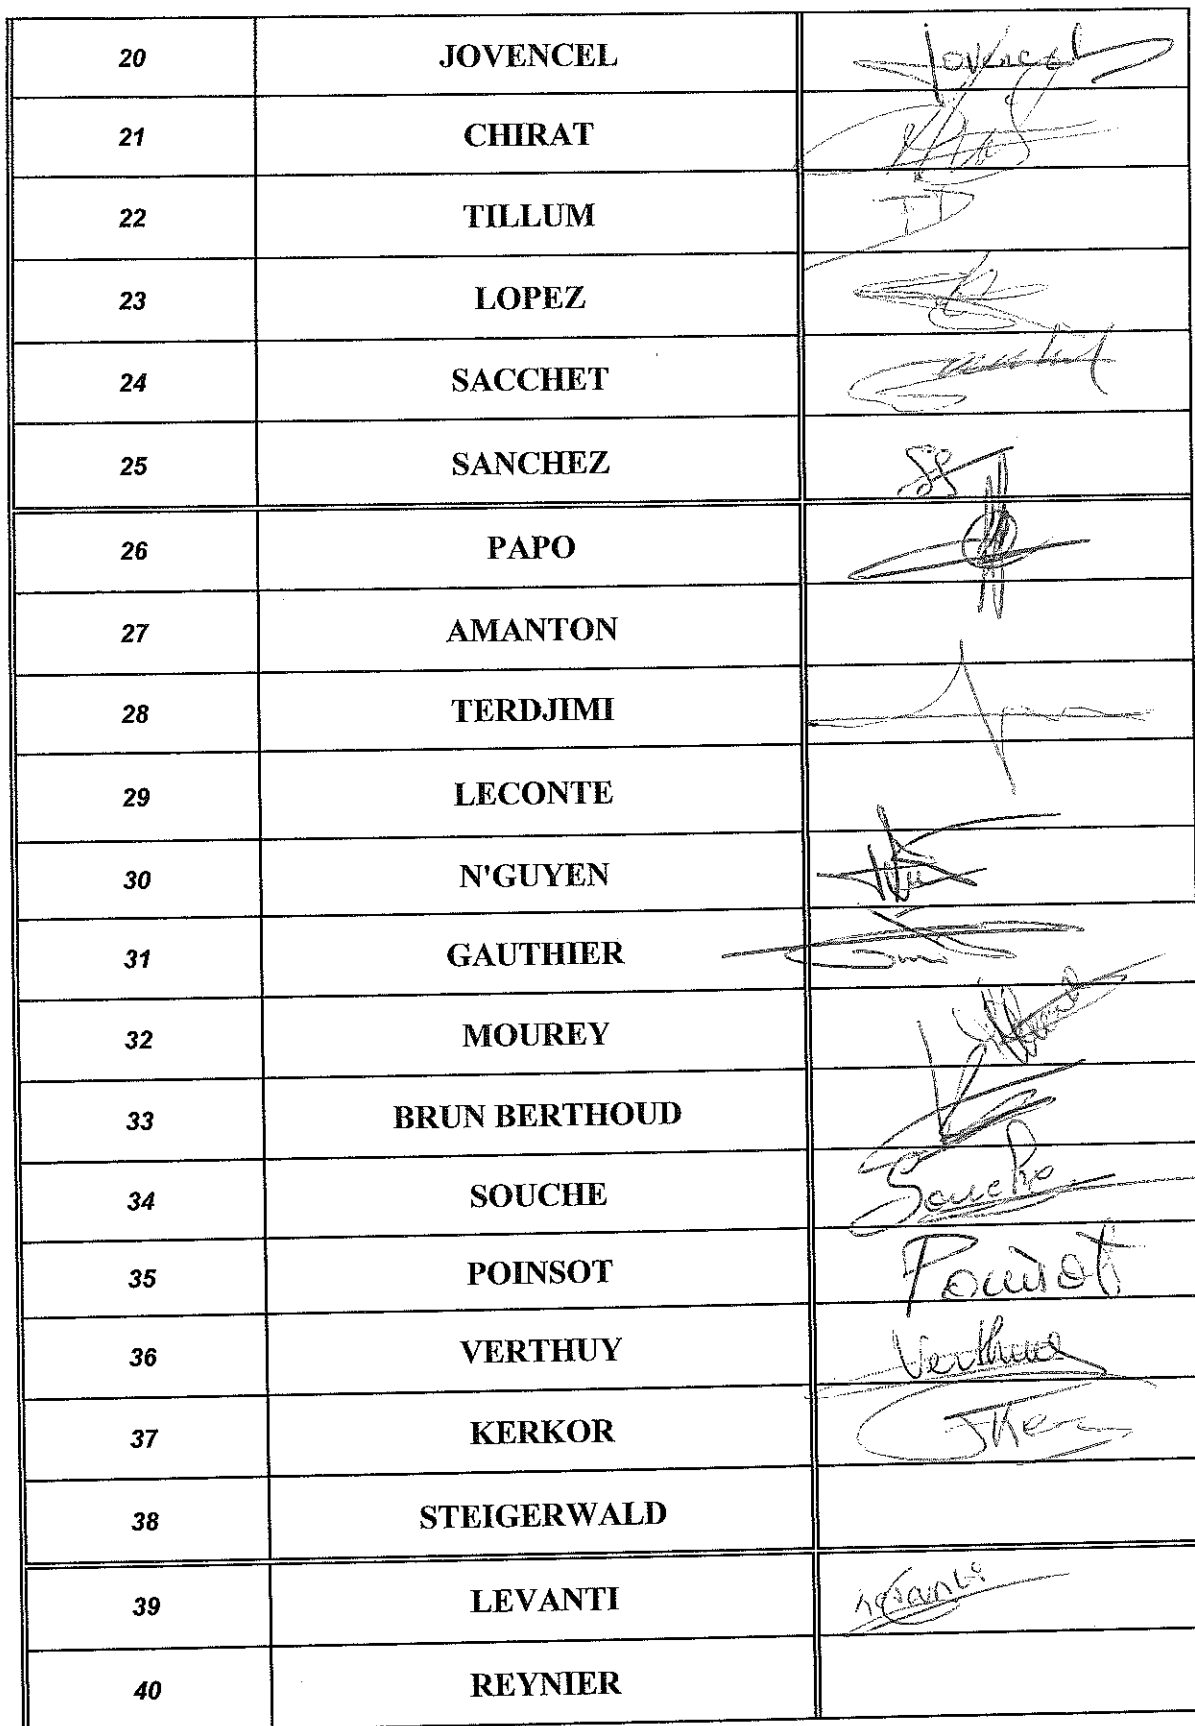 20 JOVENCEL Jovencel
21 CHIRAT
22 TILLUM
23 LOPEZ
24 SACCHET
25 SANCHEZ
26 PAPO
27 AMANTON
28 TERDJIMI
29 LECONTE
30 N'GUYEN
31 GAUTHIER
32 MOUREY
33 BRUN BERTHOUD
34 SOUCHE Souche
35 POINSOT Poinsot
36 VERTHUY
37 KERKOR
38 STEIGERWALD
39 LEVANTI
40 REYNIER